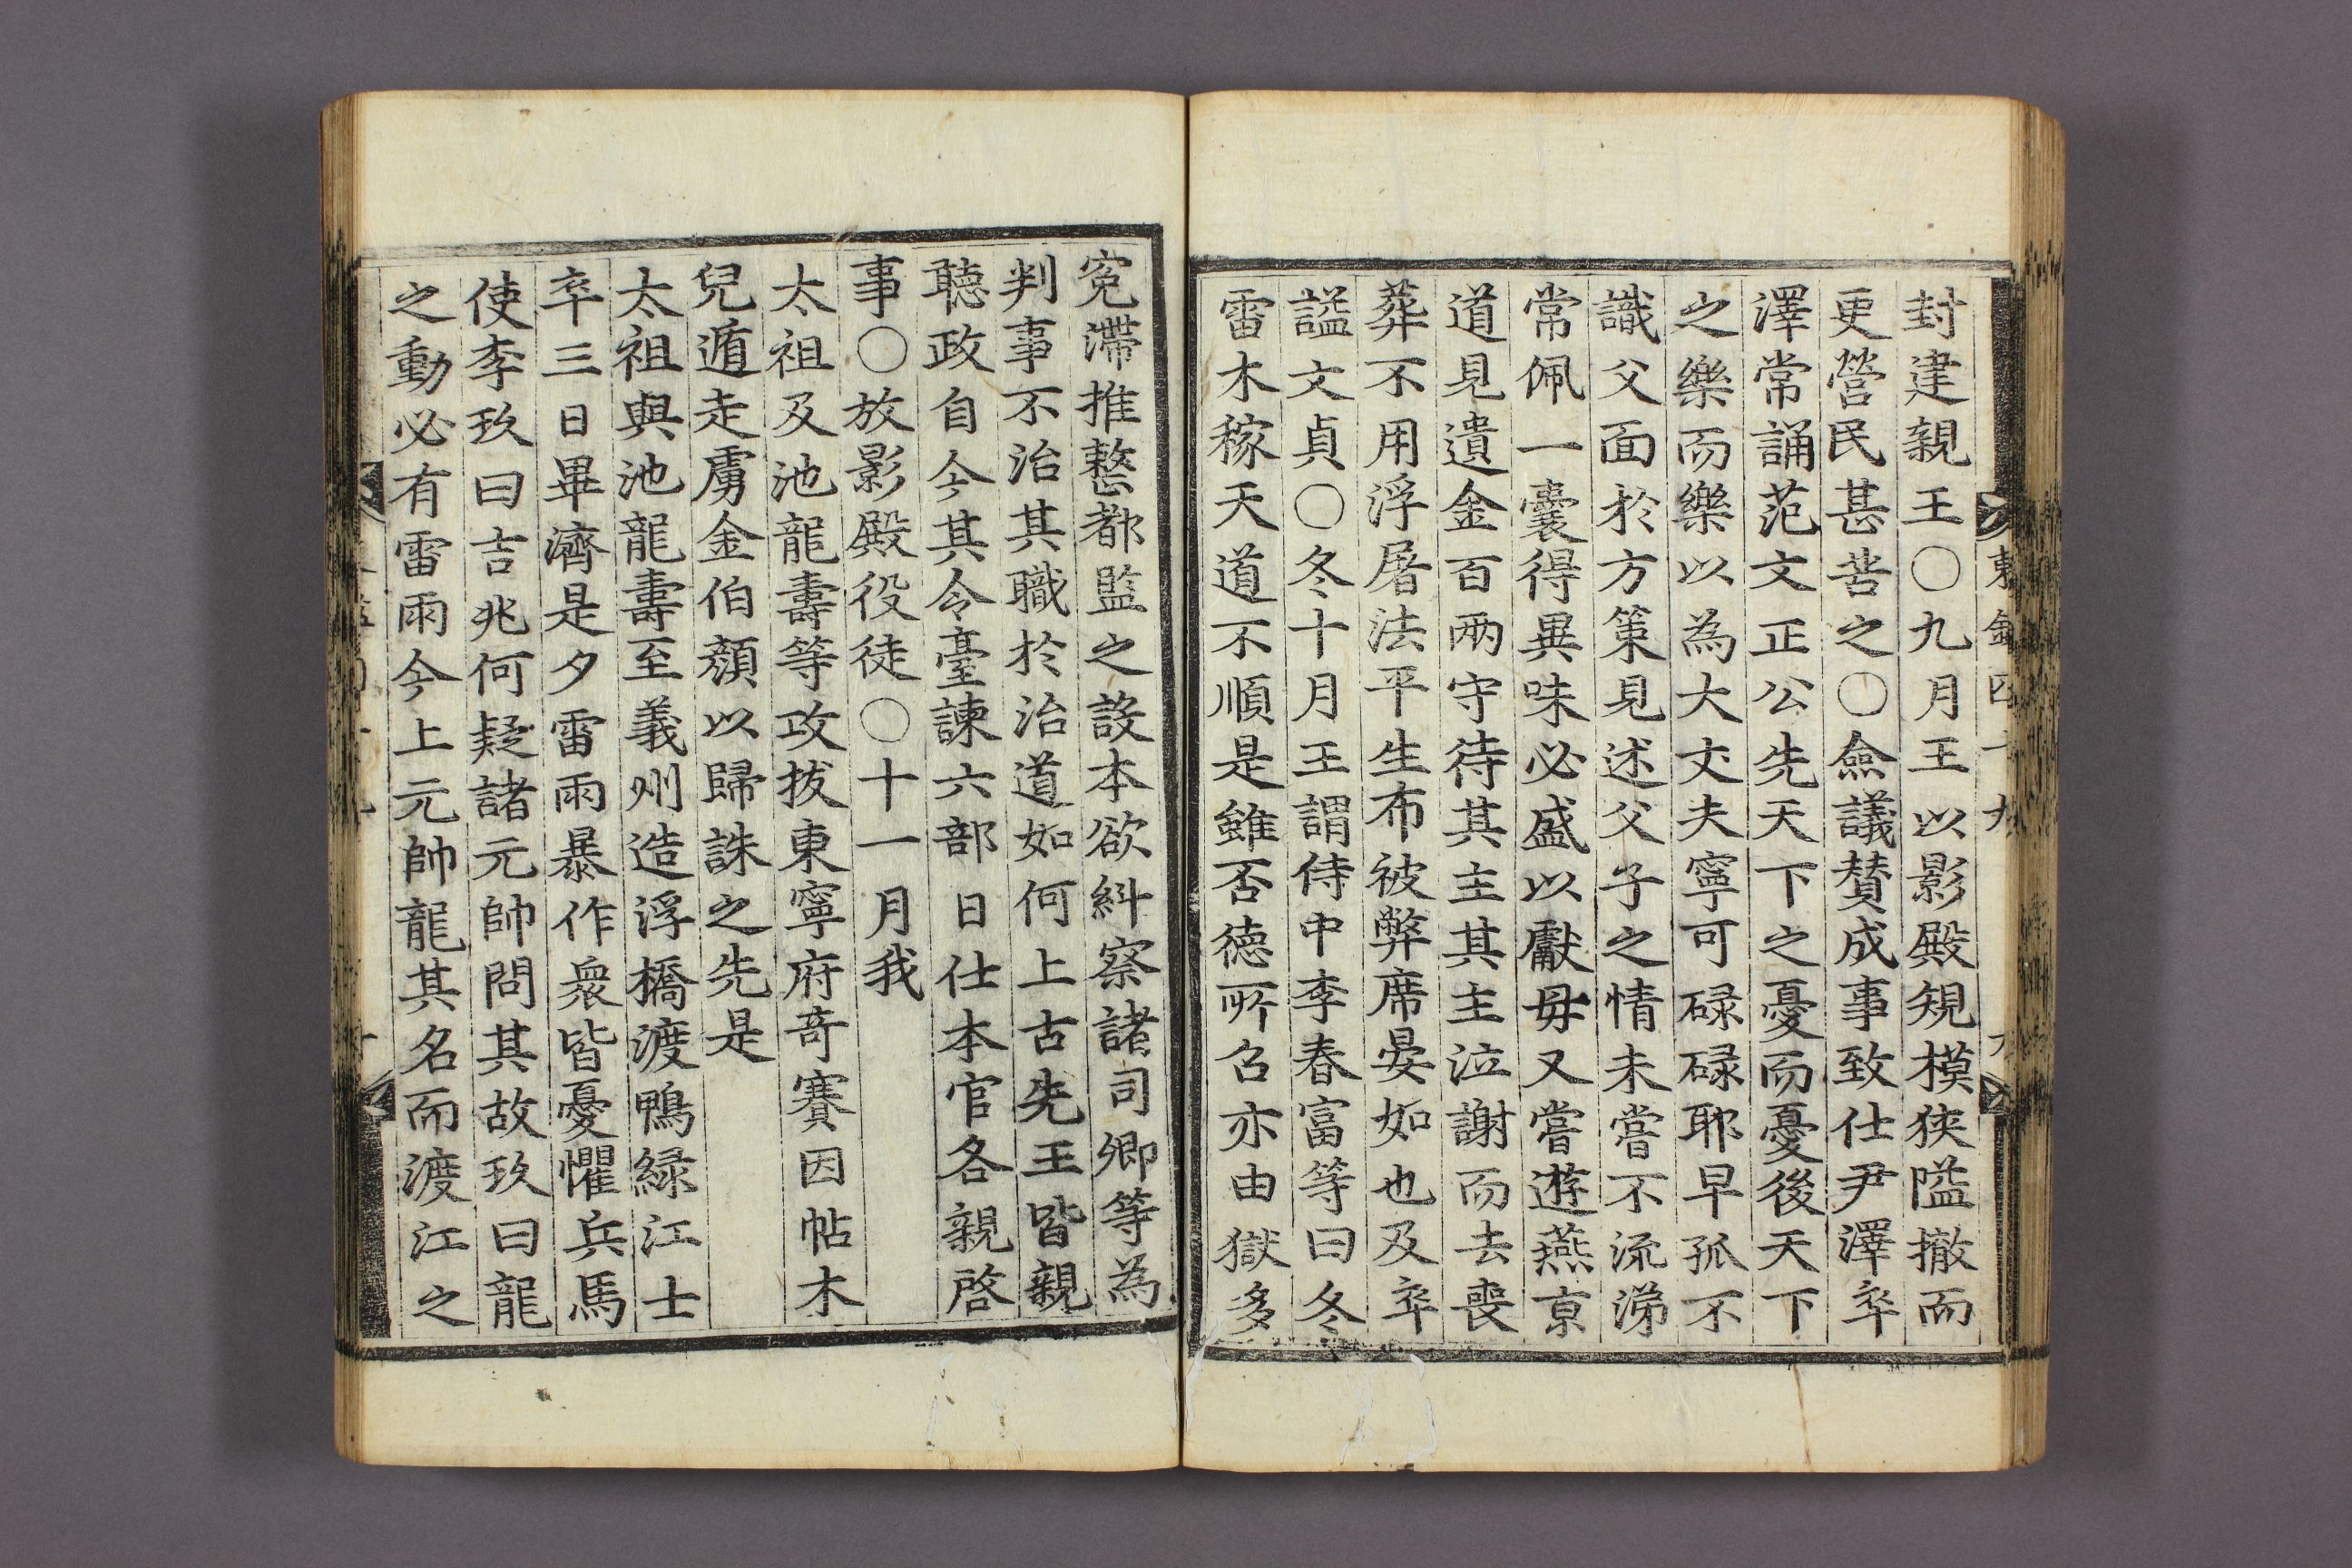 封建親王○九月王以影殿䂓模狹隘撤而
更營民甚苦之○僉議賛成事致仕尹澤卒
澤常誦范文正公先天下之憂而憂後天下
之樂而樂以為大丈夫寧可碌碌耶早孤不
識父面於方策見述父子之情未嘗不流涕
常佩一囊得異味必盛以獻毋又嘗遊燕京
道見遺金百兩守待其主其主泣謝而去喪
葬不用浮屠法平生布被弊席晏如也及卒
諡文貞○冬十月王謂侍中李春富等曰冬
雷木稼天道不順是雖否德所召亦由獄多
寃滯推整都監之設本欲糾察諸司鄉等為
判事不治其職於治道如何上古先王皆親
聽政自今其令臺諫六部日仕本官各親啓
事○放影殿役徒○十一月我
太祖及池龍壽等攻拔東寧府竒賽因帖木
兒遁走虜金伯顔以歸誅之先是
太祖與池龍壽至義州造浮橋渡鴨緑江士
卒三日畢濟是夕雷雨暴作衆皆憂懼兵馬
使李玖曰吉兆何疑諸元帥問其故玖曰龍
之動必有雷雨今上元帥龍其名而渡江之